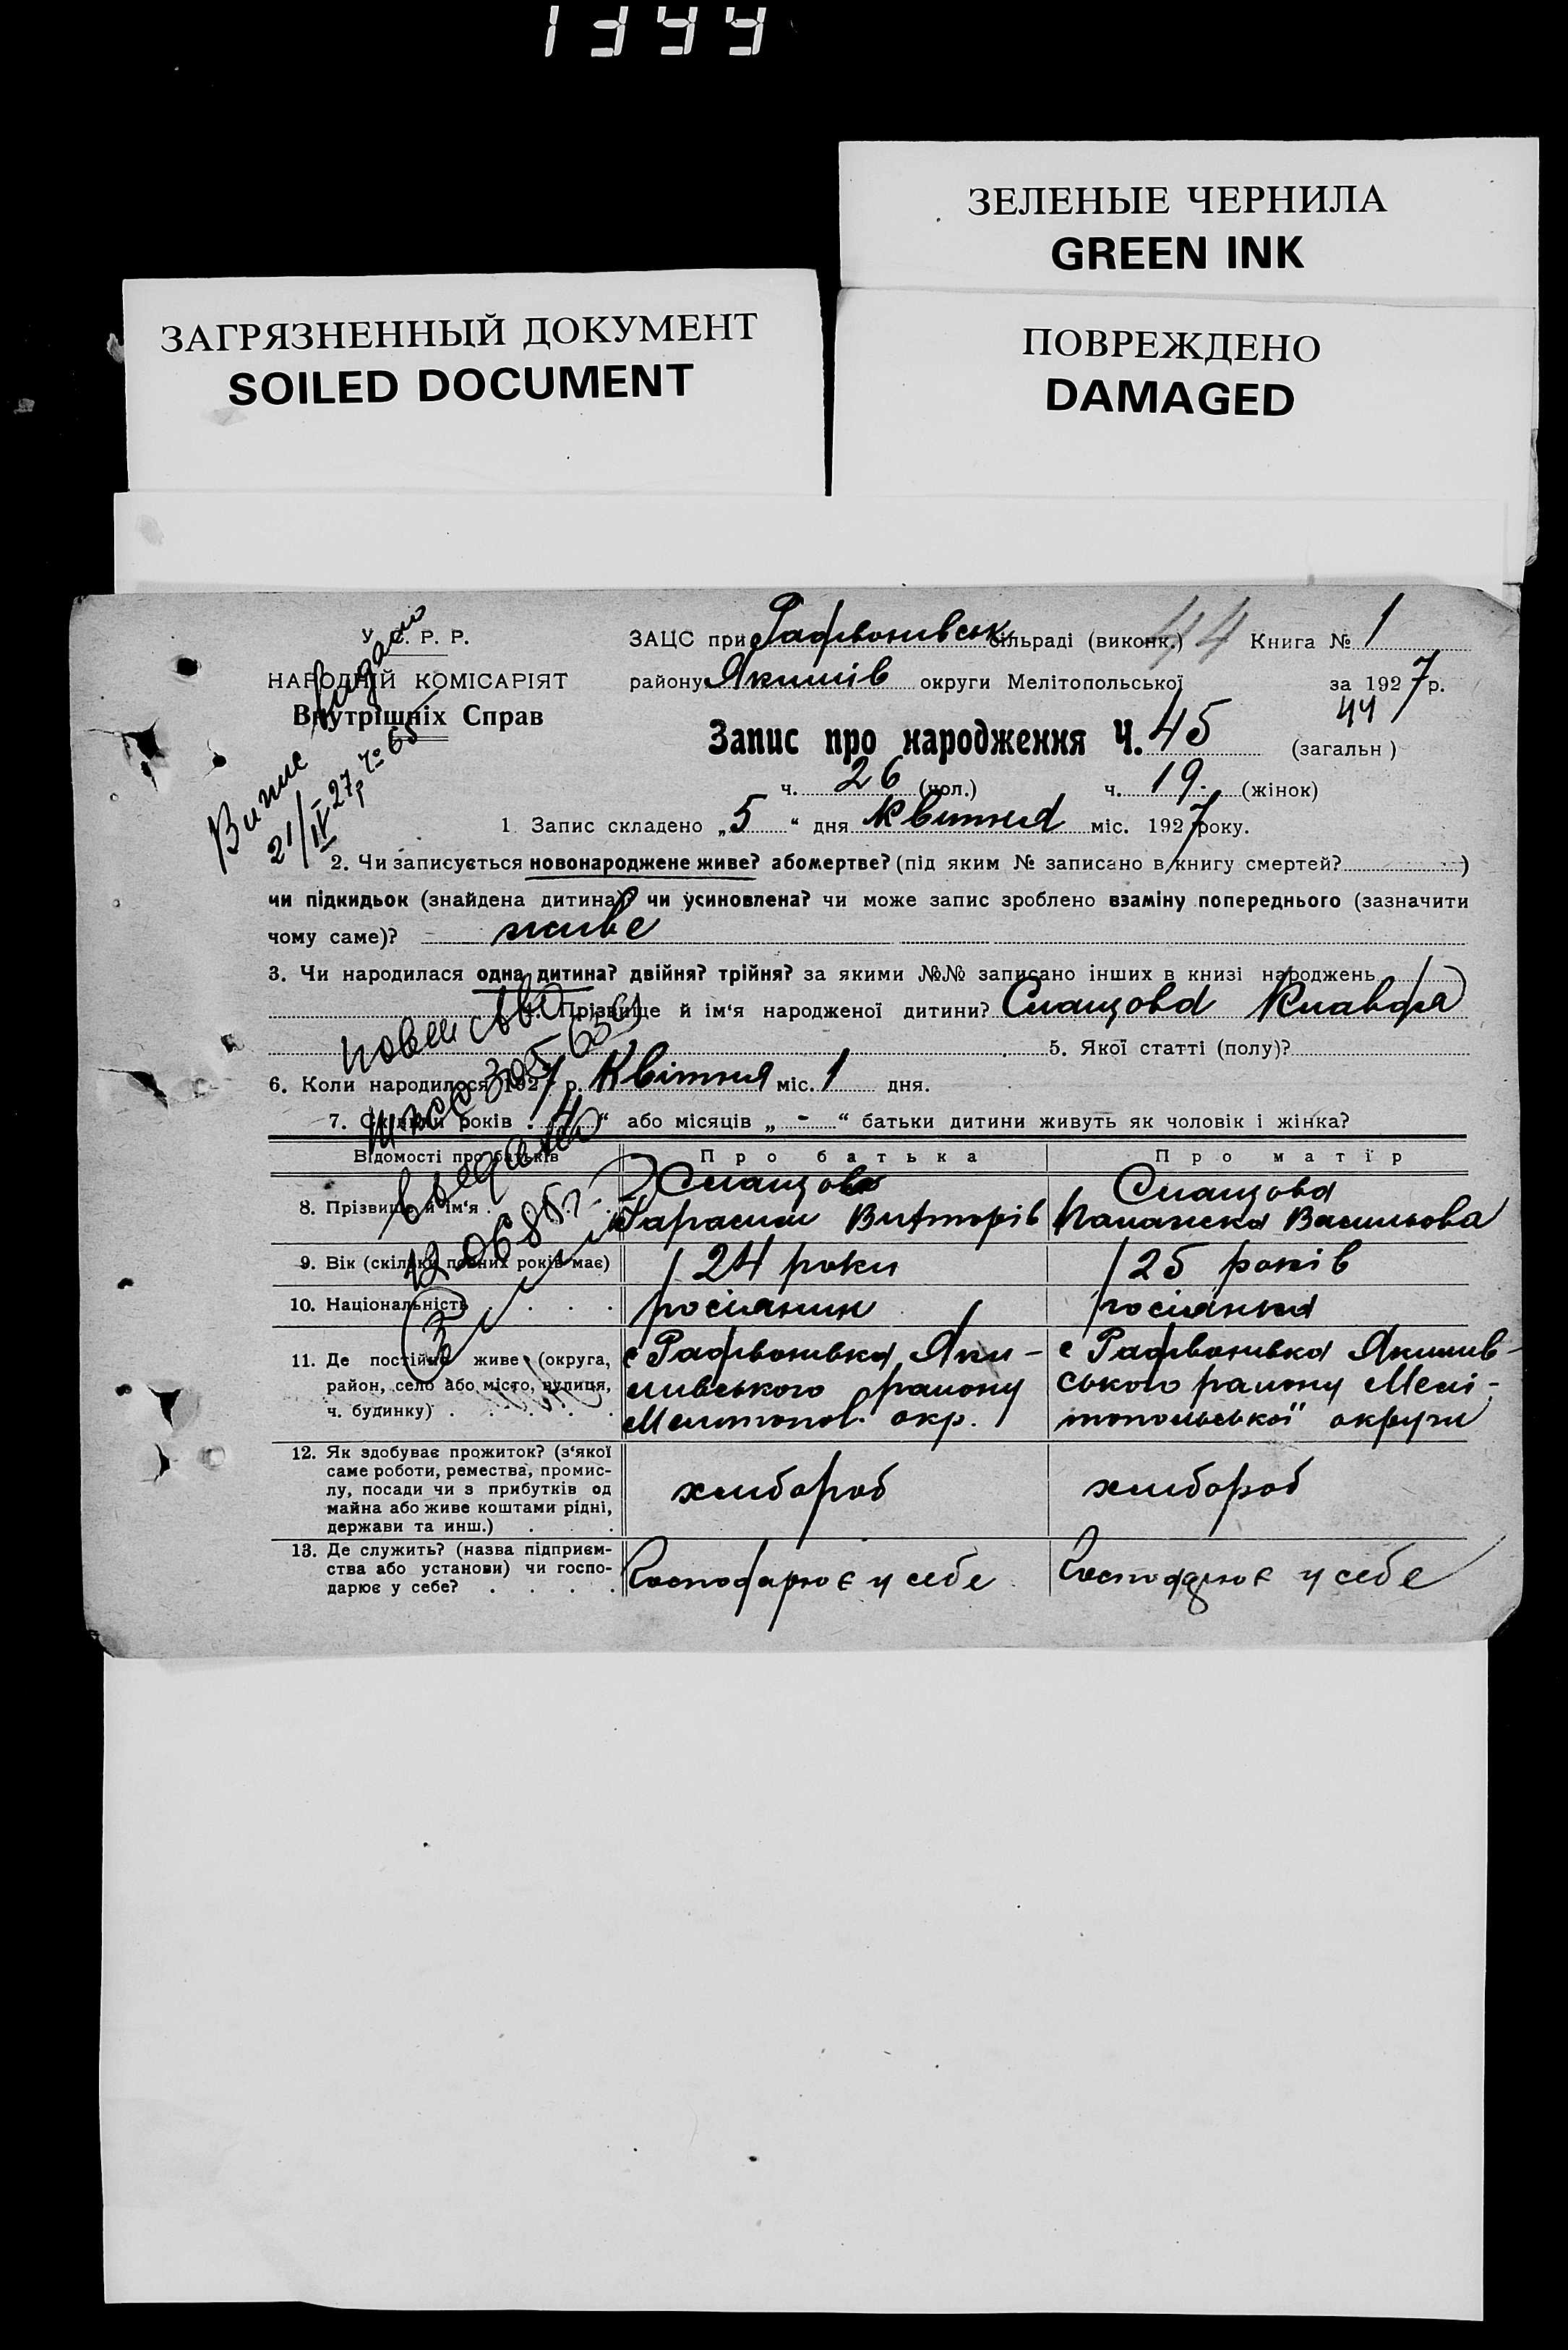 1344
ЗЕЛЕНЫЕ ЧЕРНИЛА
GREEN INK
ЗАГРЯЗНЕННЫЙ ДОКУМЕНТ
SOILED DOCUMENT
ПОВРЕЖДЕНО
DAMAGED
У. С. Р. Р.
НАРОДНІЙ КОМІСАРІЯТ
Внутрішніх Справ
Випис видано
21/IV 27 р № 65
ЗАЦС при Радивонивськ сільраді (виконк.) 44 Книга № 1
району Якимів округи Мелітопольської за 1927 р.
44
Запис про народження Ч. 45 (загальн)
ч. 26 (чол.) ч. 19. (жінок)
1. Запис складено „5“ дня Квитня міс. 1927 року.
2. Чи записується новонароджене живе? або мертве? (під яким № записано в книгу смертей? )
чи підкидьок (знайдена дитина)? чи усиновлена? чи може запис зроблено взаміну попереднього (зазначити
чому саме)? живе
3. Чи народилася одна дитина? двійня? трійня? за якими №№ записано інших в книзі народжень
4. Прізвище й ім‘я народженої дитини? Слащова Клавдія
5. Якої статті (полу)?
6. Коли народилося 1927 р. Квітня міс. 1 дня.
7. Скільки років „4“ або місяців „-“ батьки дитини живуть як чоловік і жінка?
Відомості про батьків Про батька Про матір
8. Прізвище й ім‘я Слащов Слащова
Гарасим Викторів Палажка Васильова
9. Вік (скільки повних років має) 24 роки 25 років
10. Національність росіянин росіянка
11. Де постійно живе (округа, с Радивонивка Яки- с Радивонивка Якимив-
район, село або місто, вулиця, мивського району ського району Мелі-
ч. будинку) Мелитопол. окр. топольської округи
12. Як здобуває прожиток? (з‘якої
саме роботи, ремества, промис-
лу, посади чи з прибутків од хлибороб хлибороб
майна або живе коштами рідні,
держави та инш.)
13. Де служить? (назва підприєм-
ства або установи) чи госпо- Господарює у себе Господарює у себе
дарює у себе?